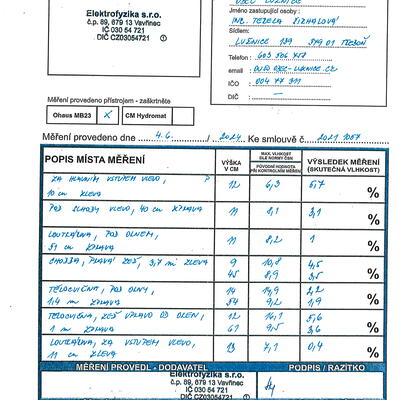 Elektrofyzika s.r.o.
č.p. 89, 679 13 Vavřinec
IČ 030 64 721
DIČ CZ03064721
OBEC LUŽNICE
Jméno zastupující osoby:
ING. TEREZA
Sídlem:
LUŽNICE 139 379 01 TŘEBOŇ
Telefon: 603 506 457
email:
IČO: 004 77 311
DIČ: —
Měření provedeno přístrojem - zaškrtněte
Ohaus MB23 X CM Hydromat
Měření provedeno dne 4.6. / 2024. Ke smlouvě č. 2021 1057
POPIS MÍSTA MĚŘENÍ VÝŠKA V CM MAX. VLHKOST DLE NORMY ČSN PŮVODNÍ HODNOTA PŘI KONTROLNÍM MĚŘENÍ VÝSLEDEK MĚŘENÍ (SKUTEČNÁ VLHKOST)
ZA HLAVNÍM VSTUPEM VLEVO, P 12 6,3 5,7 %
10 cm ZLEVA
POD SCHODY VLEVO, 40 cm ZPRAVA 11 8,1 3,1 %
LOUTKÁRNA, POD OKNEM, 11 8,2 1 %
51 cm ZPRAVA
CHODBA, PRAVÁ ZEĎ, 3,7 m ZLEVA 9 10,8 4,5 %
45 8,9 3,5
TĚLOCVIČNA, POD OKNY, 14 14,9 2,2 %
1,4 m ZPRAVA 54 9,2 1,9
TĚLOCVIČNA, ZEĎ VPRAVO OD OKEN, 12 16,1 5,6 %
1 m ZPRAVA 61 9,5 3,6
LOUTKÁRNA, ZA VSTUPEM VLEVO, 13 7,1 0,4 %
11 cm ZLEVA
MĚŘENÍ PROVEDL - DODAVATEL PODPIS / RAZÍTKO
Elektrofyzika s.r.o.
č.p. 89, 679 13 Vavřinec
IČ 030 64 721
DIČ CZ03064721